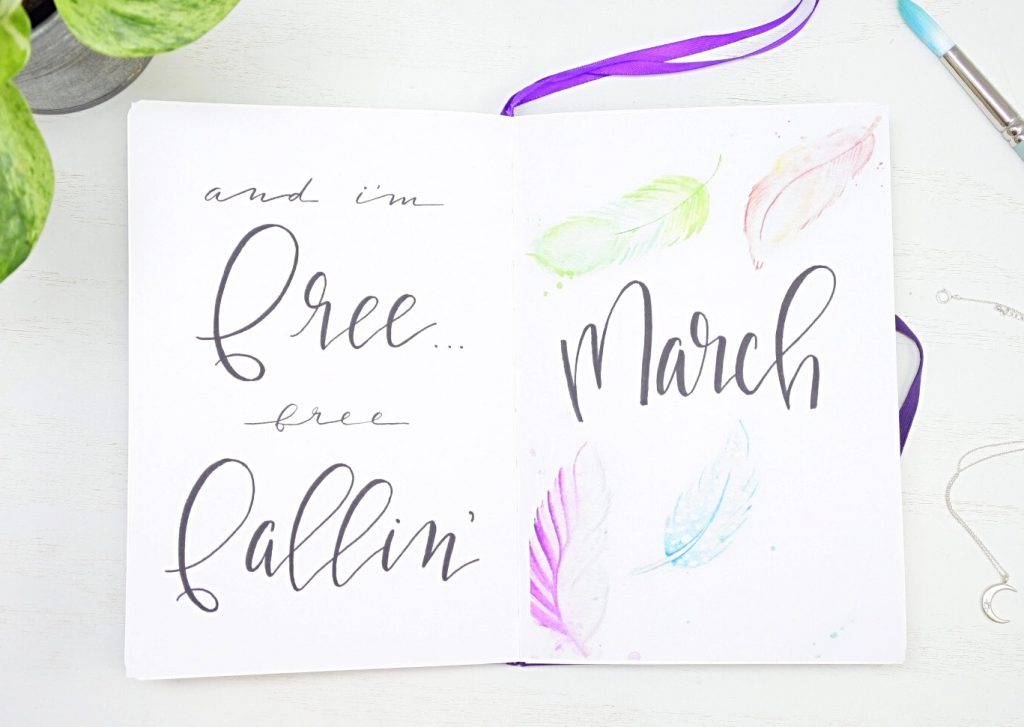 and i'm
free...
free
fallin'
March